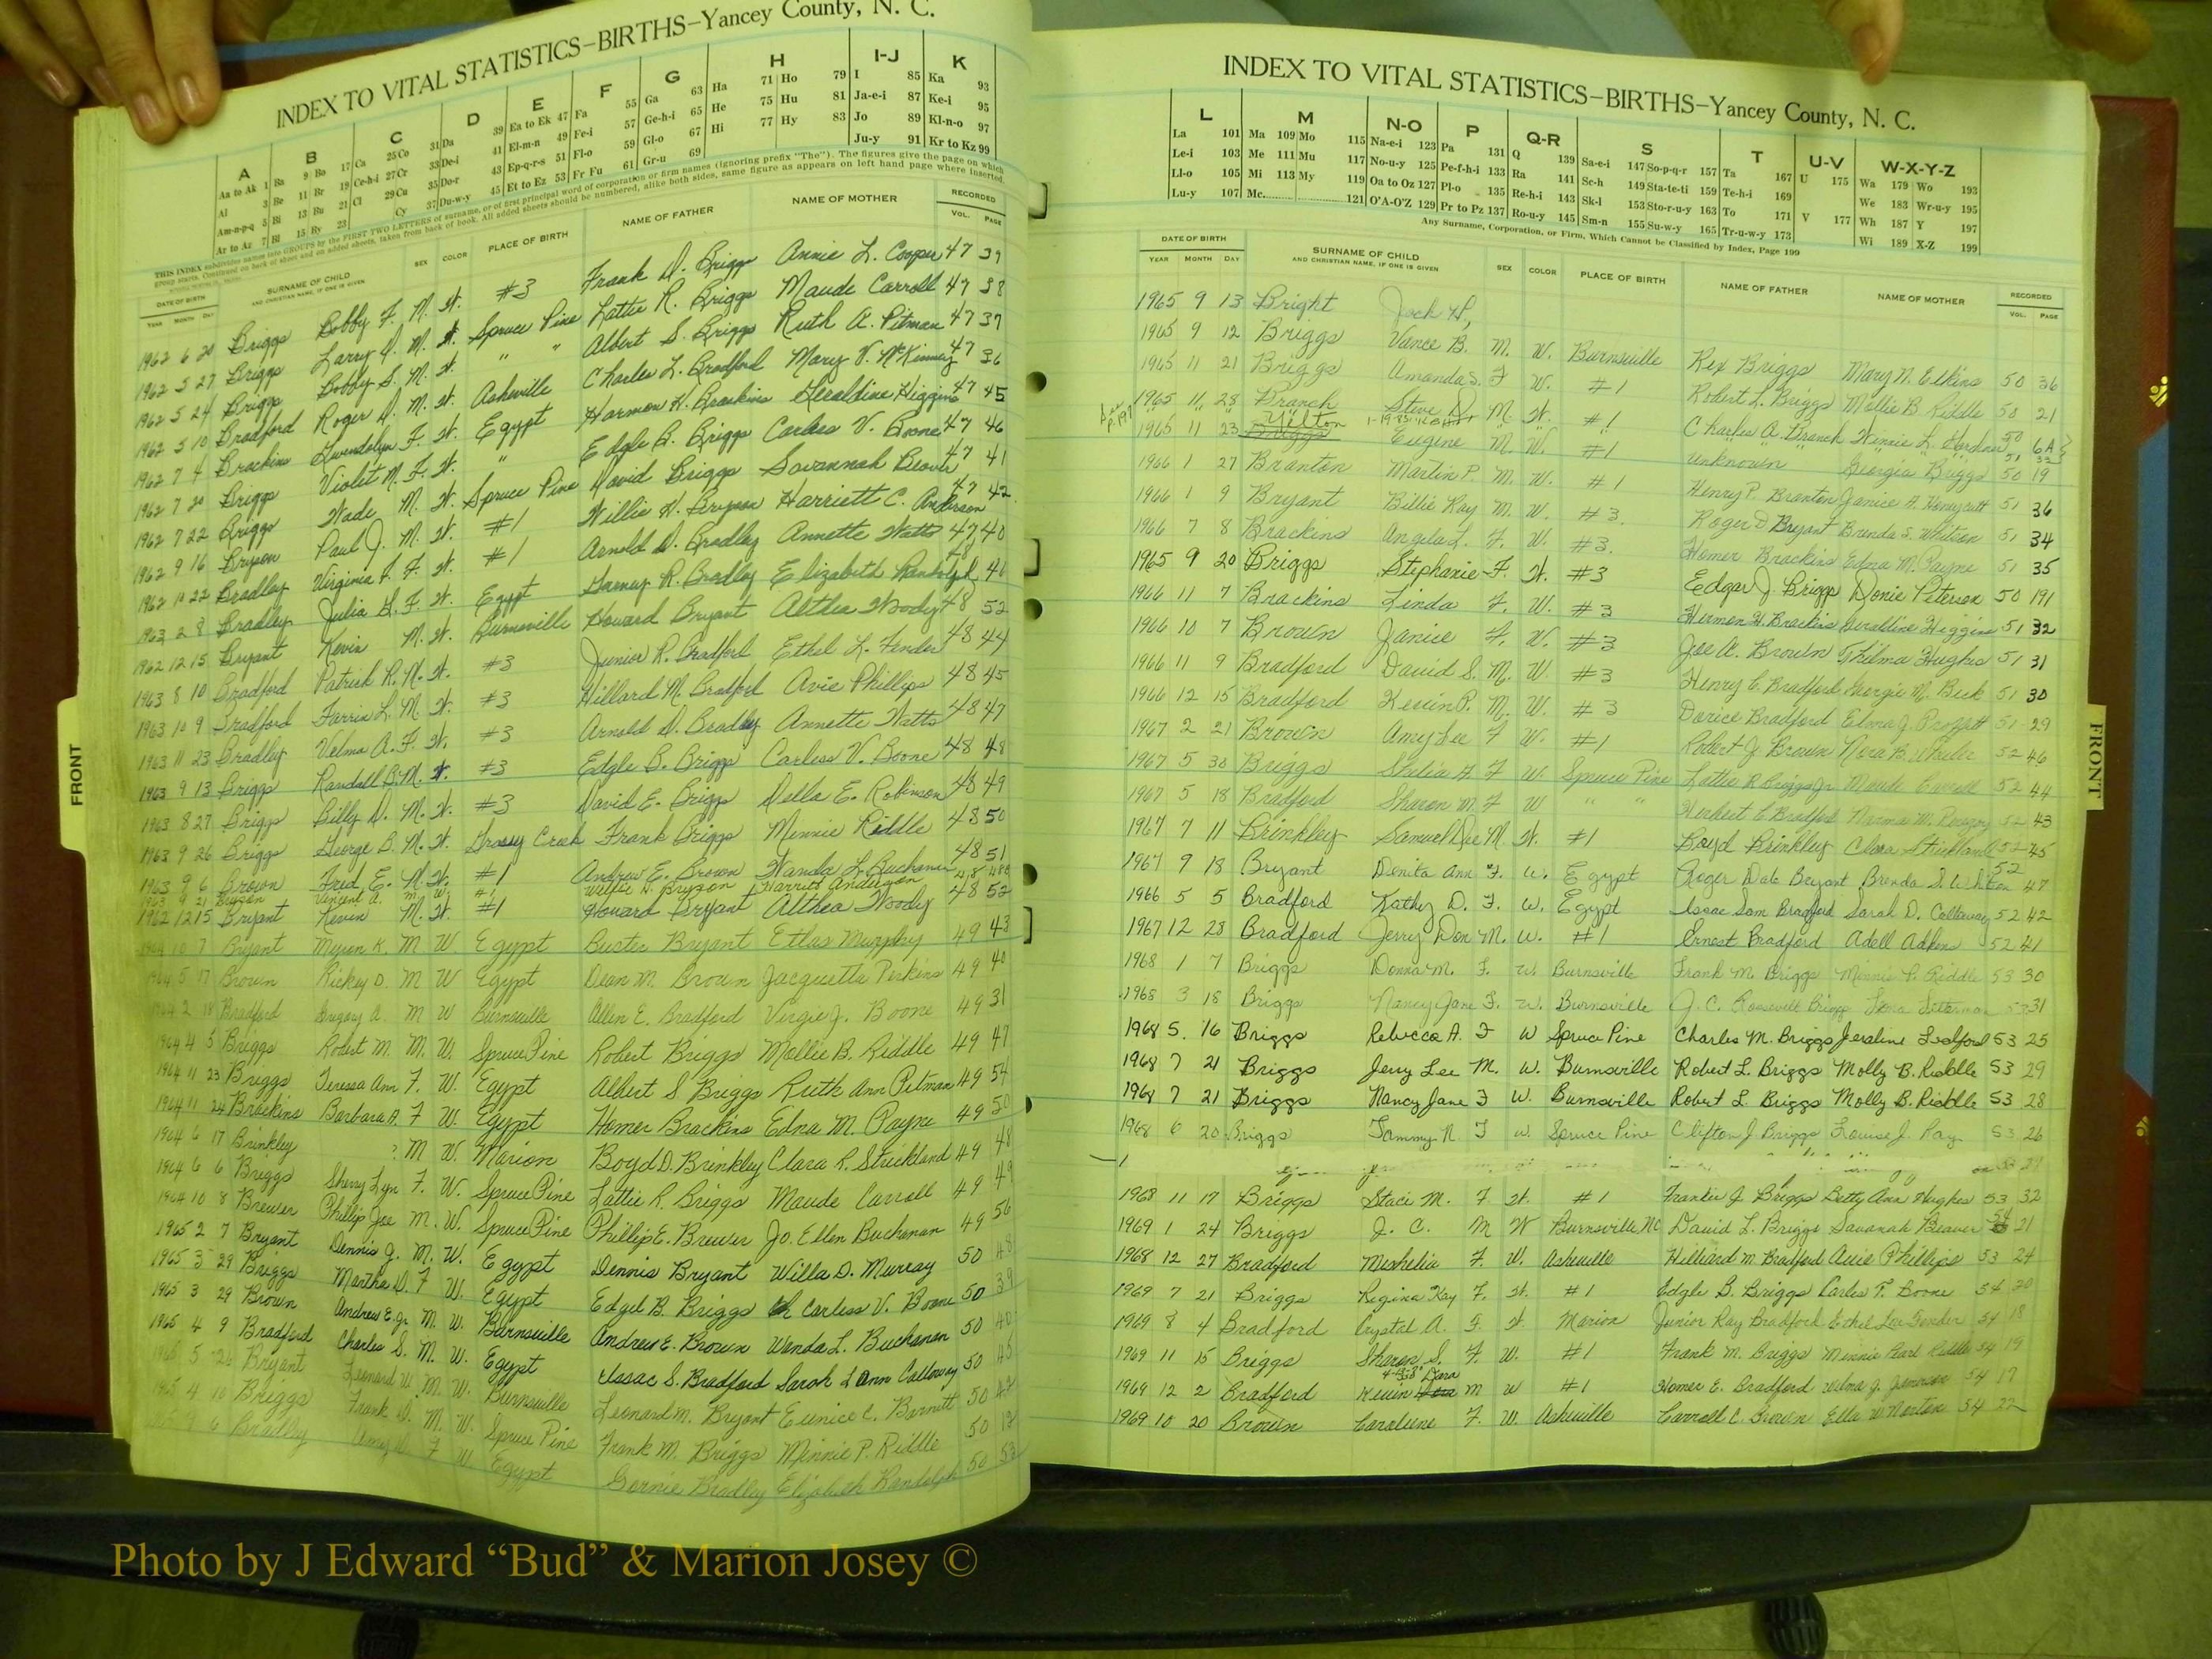 INDEX TO VITAL STATISTICS–BIRTHS–Yancey County, N. C.
A B C D E F G H I-J K
Aa to Ak 1 Ba 9 Bo 17 Ca 25 Co 31 Da 39 Ea to Ek 47 Fa 55 Ga 63 Ha 71 Ho 79 I 85 Ka 93
Al 3 Be 11 Br 19 Ce-h-i 27 Cr 33 De-i 41 El-m-n 49 Fe-i 57 Ge-h-i 65 He 75 Hu 81 Ja-e-i 87 Ke-i 95
Am-n-p-q 5 Bi 13 Bu 21 Cl 29 Cu 35 Do-r 43 Ep-q-r-s 51 Fl-o 59 Gl-o 67 Hi 77 Hy 83 Jo 89 Kl-n-o 97
Ar to Az 7 Bl 15 By 23 Cy 37 Du-w-y 45 Et to Ez 53 Fr Fu 61 Gr-u 69 Ju-y 91 Kr to Kz 99
THIS INDEX subdivides names into GROUPS by the FIRST TWO LETTERS of surname, or of first principal word of corporation or firm names (ignoring prefix "The"). The figures give the page on which
group starts. Continued on back of sheet and on added sheets, taken from back of book. All added sheets should be numbered, alike both sides, same figure as appears on left hand page where inserted.
DATE OF BIRTH SURNAME OF CHILD SEX COLOR PLACE OF BIRTH NAME OF FATHER NAME OF MOTHER RECORDED
YEAR MONTH DAY AND CHRISTIAN NAME, IF ONE IS GIVEN VOL. PAGE
1962 6 20 Briggs Bobby F. M. W. #3 Frank D. Briggs Annie L. Cooper 47 39
1962 5 27 Briggs Larry D. M. W. Spruce Pine Lattie R. Briggs Maude Carroll 47 38
1962 5 24 Briggs Bobby S. M. W. " " Albert S. Briggs Ruth A. Pitman 47 37
1962 5 10 Bradford Roger D. M. W. Asheville Charles L. Bradford Mary V. McKinney 47 36
1962 7 4 Brackins Gwendolyn F. W. Egypt Harmon H. Brackins Geraldine Higgins 47 45
1962 7 20 Briggs Violet M. F. W. " Edgle B. Briggs Carless V. Boone 47 46
1962 7 22 Briggs Wade M. W. Spruce Pine David Briggs Savannah Beaver 47 41
1962 9 16 Bryson Paul J. M. W. #1 Willie H. Bryson Harriett C. Anderson 47 42
1962 10 22 Bradley Virginia F. W. #1 Arnold D. Bradley Annette Watts 47 40
1963 2 8 Bradley Julia F. W. Egypt R. Bradley Elizabeth Randolph 48 46
1962 12 15 Bryant Kevin M. W. Burnsville Howard Bryant Althea Woody 48 52
1963 8 10 Bradford Patrick R. M. W. #3 Junior R. Bradford Ethel L. Fender 48 44
1963 10 9 Bradford Farrin L. M. W. #3 Hillard M. Bradford Avie Phillips 48 45
1963 11 23 Bradley Velma A. F. W. #3 Arnold D. Bradley Annette Watts 48 47
1963 9 13 Briggs Randall B. M. W. #3 Edgle B. Briggs Carless V. Boone 48 48
1963 8 27 Briggs Billy D. M. W. #3 David E. Briggs Della E. Robinson 48 49
1963 9 26 Briggs George B. M. W. Grassy Creek Frank Briggs Minnie Riddle 48 50
1963 9 6 Brown Fred E. M. W. #1 Andrew E. Brown Wanda L. Buchanan 48 51
1963 9 21 Bryson Vincent A. M. W. #1 Willie H. Bryson Harriet Anderson 48
1962 12 15 Bryant Kevin M. W. #1 Howard Bryant Althea Woody 48 52
1964 10 7 Bryant Myron K. M W Egypt Buster Bryant Etlas Murphy 49 43
1964 5 17 Brown Rickey D. M W Egypt Dean M. Brown Jacquetta Perkins 49 40
1964 2 18 Bradford Gregory A. M W Burnsville Allen E. Bradford Virgie J. Boone 49 31
1964 4 5 Briggs Robert M. M. W. Spruce Pine Robert Briggs Mollie B. Riddle 49 47
1964 11 23 Briggs Teressa Ann F. W. Egypt Albert S Briggs Ruth Ann Pitman 49 54
1964 11 24 Brackins Barbara A. F W. Egypt Homer Brackins Edna M. Payne 49 50
1964 6 17 Brinkley ? M W. Marion Boyd D. Brinkley Clara R. Strickland 49 48
1964 6 6 Briggs Sherry Lyn F. W. Spruce Pine Lattie R. Briggs Maude Carroll 49 49
1964 10 8 Brewer Phillip Joe M. W. Spruce Pine Phillip E. Brewer Jo. Ellen Buchanan 49 56
1965 2 7 Bryant Dennis J. M. W. Egypt Dennis Bryant Willa D. Murray 50 48
1965 3 29 Briggs Martha D. F W. Egypt Edgel B. Briggs Carless V. Boone 50 39
1965 3 29 Brown Andrew E. Jr. M. W. Burnsville Andrew E. Brown Wanda L. Buchanan 50 40
1965 4 9 Bradford Charles S. M. W. Egypt Issac S. Bradford Sarah Ann Calloway 50 45
1965 5 26 Bryant Leonard W. M. W. Burnsville Leonard M. Bryant Eunice C. Barnett 50 47
1965 4 10 Briggs Frank D. M. W. Spruce Pine Frank M. Briggs Minnie P. Riddle 50
6 Bradley Amy F W. Egypt Bradley Elizabeth Randolph 50
FRONT
INDEX TO VITAL STATISTICS–BIRTHS–Yancey County, N. C.
L M N-O P Q-R S T U-V W-X-Y-Z
La 101 Ma 109 Mo 115 Na-e-i 123 Pa 131 Q 139 Sa-e-i 147 So-p-q-r 157 Ta 167 U 175 Wa 179 Wo 193
Le-i 103 Me 111 Mu 117 No-u-y 125 Pe-f-h-i 133 Ra 141 Sc-h 149 Sta-te-ti 159 Te-h-i 169 We 183 Wr-u-y 195
Ll-o 105 Mi 113 My 119 Oa to Oz 127 Pl-o 135 Re-h-i 143 Sk-l 153 Sto-r-u-y 163 To 171 V 177 Wh 187 Y 197
Lu-y 107 Mc 121 O'A-O'Z 129 Pr to Pz 137 Ro-u-y 145 Sm-n 155 Su-w-y 165 Tr-u-w-y 173 Wi 189 X-Z 199
Any Surname, Corporation, or Firm, Which Cannot be Classified by Index, Page 199
DATE OF BIRTH SURNAME OF CHILD SEX COLOR PLACE OF BIRTH NAME OF FATHER NAME OF MOTHER RECORDED
YEAR MONTH DAY AND CHRISTIAN NAME, IF ONE IS GIVEN VOL. PAGE
1965 9 13 Bright Jack H,
1965 9 12 Briggs Vance B. M. W. Burnsville Rex Briggs Mary N. Elkins 50 36
1965 11 21 Briggs Amanda S. F W. #1 Robert L. Briggs Mollie B Riddle 50 21
1965 11 28 Branch Steve D. M. W. #1 Charles A. Branch Gardner 50 6A
Yelton
1965 11 23 Briggs Eugene M. W. #1 unknown Georgia Briggs 50 19
1966 1 27 Branton Martin P. M. W. #1 Henry P. Branton Janice A. Honeycutt 51 36
1966 1 9 Bryant Billie Ray M. W. #3. Roger D Bryant Brenda S. Whitson 51 34
1966 7 8 Brackins Angela L. F. W. #3. Homer Brackins Edna M. Payne 51 35
1965 9 20 Briggs Stephanie F. W. #3 Edgar J. Briggs Donie Peterson 50 191
1966 11 7 Brackins Linda F. W. #3 Hermon H. Brackins Geraldine Higgins 51 32
1966 10 7 Brown Janice F. W. #3 Joe A. Brown Thilma Hughes 51 31
1966 11 9 Bradford David S. M. W. #3 Henry C. Bradford Georgie M. Buck 51 30
1966 12 15 Bradford Kevin P. M. W. #3 Dorice Bradford 51 29
1967 2 21 Brown Amy Lee F W. #1 Robert J. Brown Nora B. Wheeler 52 46
1967 5 30 Briggs F W. Spruce Pine Lattie R Briggs Jr Maude Carroll 52 44
1967 5 18 Bradford Sharon M. F W " " Herbert C Bradford Norma W. 52 43
1967 7 11 Brinkley Samuel Doe M. W. #1 Boyd Brinkley Clara Strickland 52 45
1967 9 18 Bryant Donita Ann F. W. Egypt Roger Dale Bryant Brenda S. Whitson 52 47
1966 5 5 Bradford Kathy D. F. W. Egypt Issac Sam Bradford Sarah D. Calloway 52 42
1967 12 28 Bradford Jerry Don M. W. #1 Ernest Bradford Adell Adkins 52 41
1968 1 7 Briggs Donna M. F. W. Burnsville Frank M. Briggs Minnie P. Riddle 53 30
1968 3 18 Briggs Nancy Jane F. W. Burnsville J. C. Roosevelt Briggs 53 31
1968 5 16 Briggs Rebecca A. F W Spruce Pine Charles M. Briggs Jeraline Ledford 53 25
1968 7 21 Briggs Jerry Lee M. W. Burnsville Robert L. Briggs Molly B. Riddle 53 29
1968 7 21 Briggs Nancy Jane F W. Burnsville Robert L. Briggs Molly B. Riddle 53 28
1968 6 20 Briggs Tammy R. F W. Spruce Pine Clifton J Briggs Louise J. Ray 53 26
1968 11 17 Briggs Staci M. F W. #1 Frankie J. Briggs Betty Ann Hughes 53 32
1969 1 24 Briggs J. C. M W Burnsville NC David L. Briggs Savanah Beaver 54 21
1968 12 27 Bradford Meshelia F. W. Asheville Hilliard M. Bradford Avie Phillips 53 24
1969 7 21 Briggs Regina Kay F. W. #1 Edgle B. Briggs Carles F. Boone 54 20
1969 8 4 Bradford Crystal A. F. W. Marion Junior Ray Bradford Ethel Lou Fender 54 18
1969 11 15 Briggs Sharon S. F. W. #1 Frank M. Briggs Minnie Pearl Riddle 54 19
1969 12 2 Bradford Kevin M W #1 Homer E. Bradford Wilma J. 54 17
1969 10 20 Brown Caroline F. W. Asheville Carroll C. Brown Ella W Norton 54 22
FRONT
Photo by J Edward “Bud” & Marion Josey ©